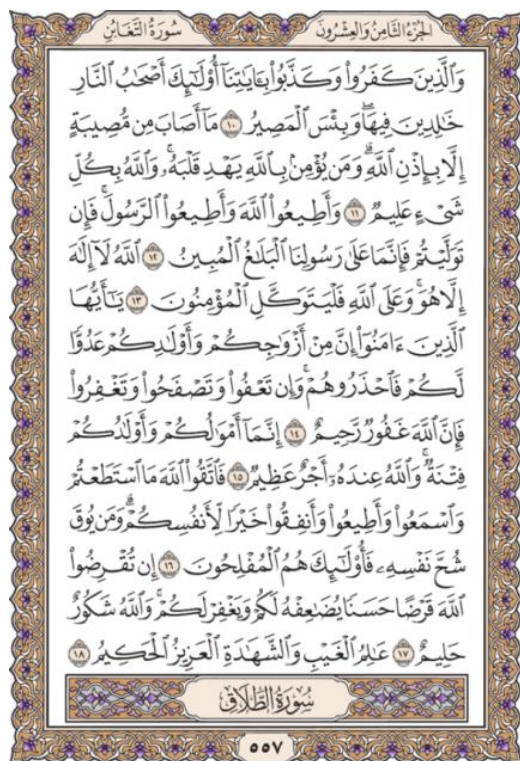 سُورَةُ التَّغَابُنِ
الجُزْءُ الثَّامِنُ وَالعِشْرُونَ
وَالَّذِينَ كَفَرُوا۟ وَكَذَّبُوا۟ بِـَٔايَـٰتِنَآ أُو۟لَـٰٓئِكَ أَصْحَـٰبُ النَّارِ
خَـٰلِدِينَ فِيهَا ۖ وَبِئْسَ الْمَصِيرُ ١٠ مَآ أَصَابَ مِن مُّصِيبَةٍ
إِلَّا بِإِذْنِ اللَّهِ ۗ وَمَن يُؤْمِنۢ بِاللَّهِ يَهْدِ قَلْبَهُۥ ۚ وَاللَّهُ بِكُلِّ
شَىْءٍ عَلِيمٌ ١١ وَأَطِيعُوا۟ اللَّهَ وَأَطِيعُوا۟ الرَّسُولَ ۚ فَإِن
تَوَلَّيْتُمْ فَإِنَّمَا عَلَىٰ رَسُولِنَا الْبَلَـٰغُ الْمُبِينُ ١٢ اللَّهُ لَآ إِلَـٰهَ
إِلَّا هُوَ ۚ وَعَلَى اللَّهِ فَلْيَتَوَكَّلِ الْمُؤْمِنُونَ ١٣ يَـٰٓأَيُّهَا
الَّذِينَ ءَامَنُوٓا۟ إِنَّ مِنْ أَزْوَٰجِكُمْ وَأَوْلَـٰدِكُمْ عَدُوًّا
لَّكُمْ فَاحْذَرُوهُمْ ۚ وَإِن تَعْفُوا۟ وَتَصْفَحُوا۟ وَتَغْفِرُوا۟
فَإِنَّ اللَّهَ غَفُورٌ رَّحِيمٌ ١٤ إِنَّمَآ أَمْوَٰلُكُمْ وَأَوْلَـٰدُكُمْ
فِتْنَةٌ ۚ وَاللَّهُ عِندَهُۥٓ أَجْرٌ عَظِيمٌ ١٥ فَاتَّقُوا۟ اللَّهَ مَا اسْتَطَعْتُمْ
وَاسْمَعُوا۟ وَأَطِيعُوا۟ وَأَنفِقُوا۟ خَيْرًا لِّأَنفُسِكُمْ ۗ وَمَن يُوقَ
شُحَّ نَفْسِهِۦ فَأُو۟لَـٰٓئِكَ هُمُ الْمُفْلِحُونَ ١٦ إِن تُقْرِضُوا۟
اللَّهَ قَرْضًا حَسَنًا يُضَـٰعِفْهُ لَكُمْ وَيَغْفِرْ لَكُمْ ۚ وَاللَّهُ شَكُورٌ
حَلِيمٌ ١٧ عَـٰلِمُ الْغَيْبِ وَالشَّهَـٰدَةِ الْعَزِيزُ الْحَكِيمُ ١٨
سُورَةُ الطَّلَاقِ
٥٥٧